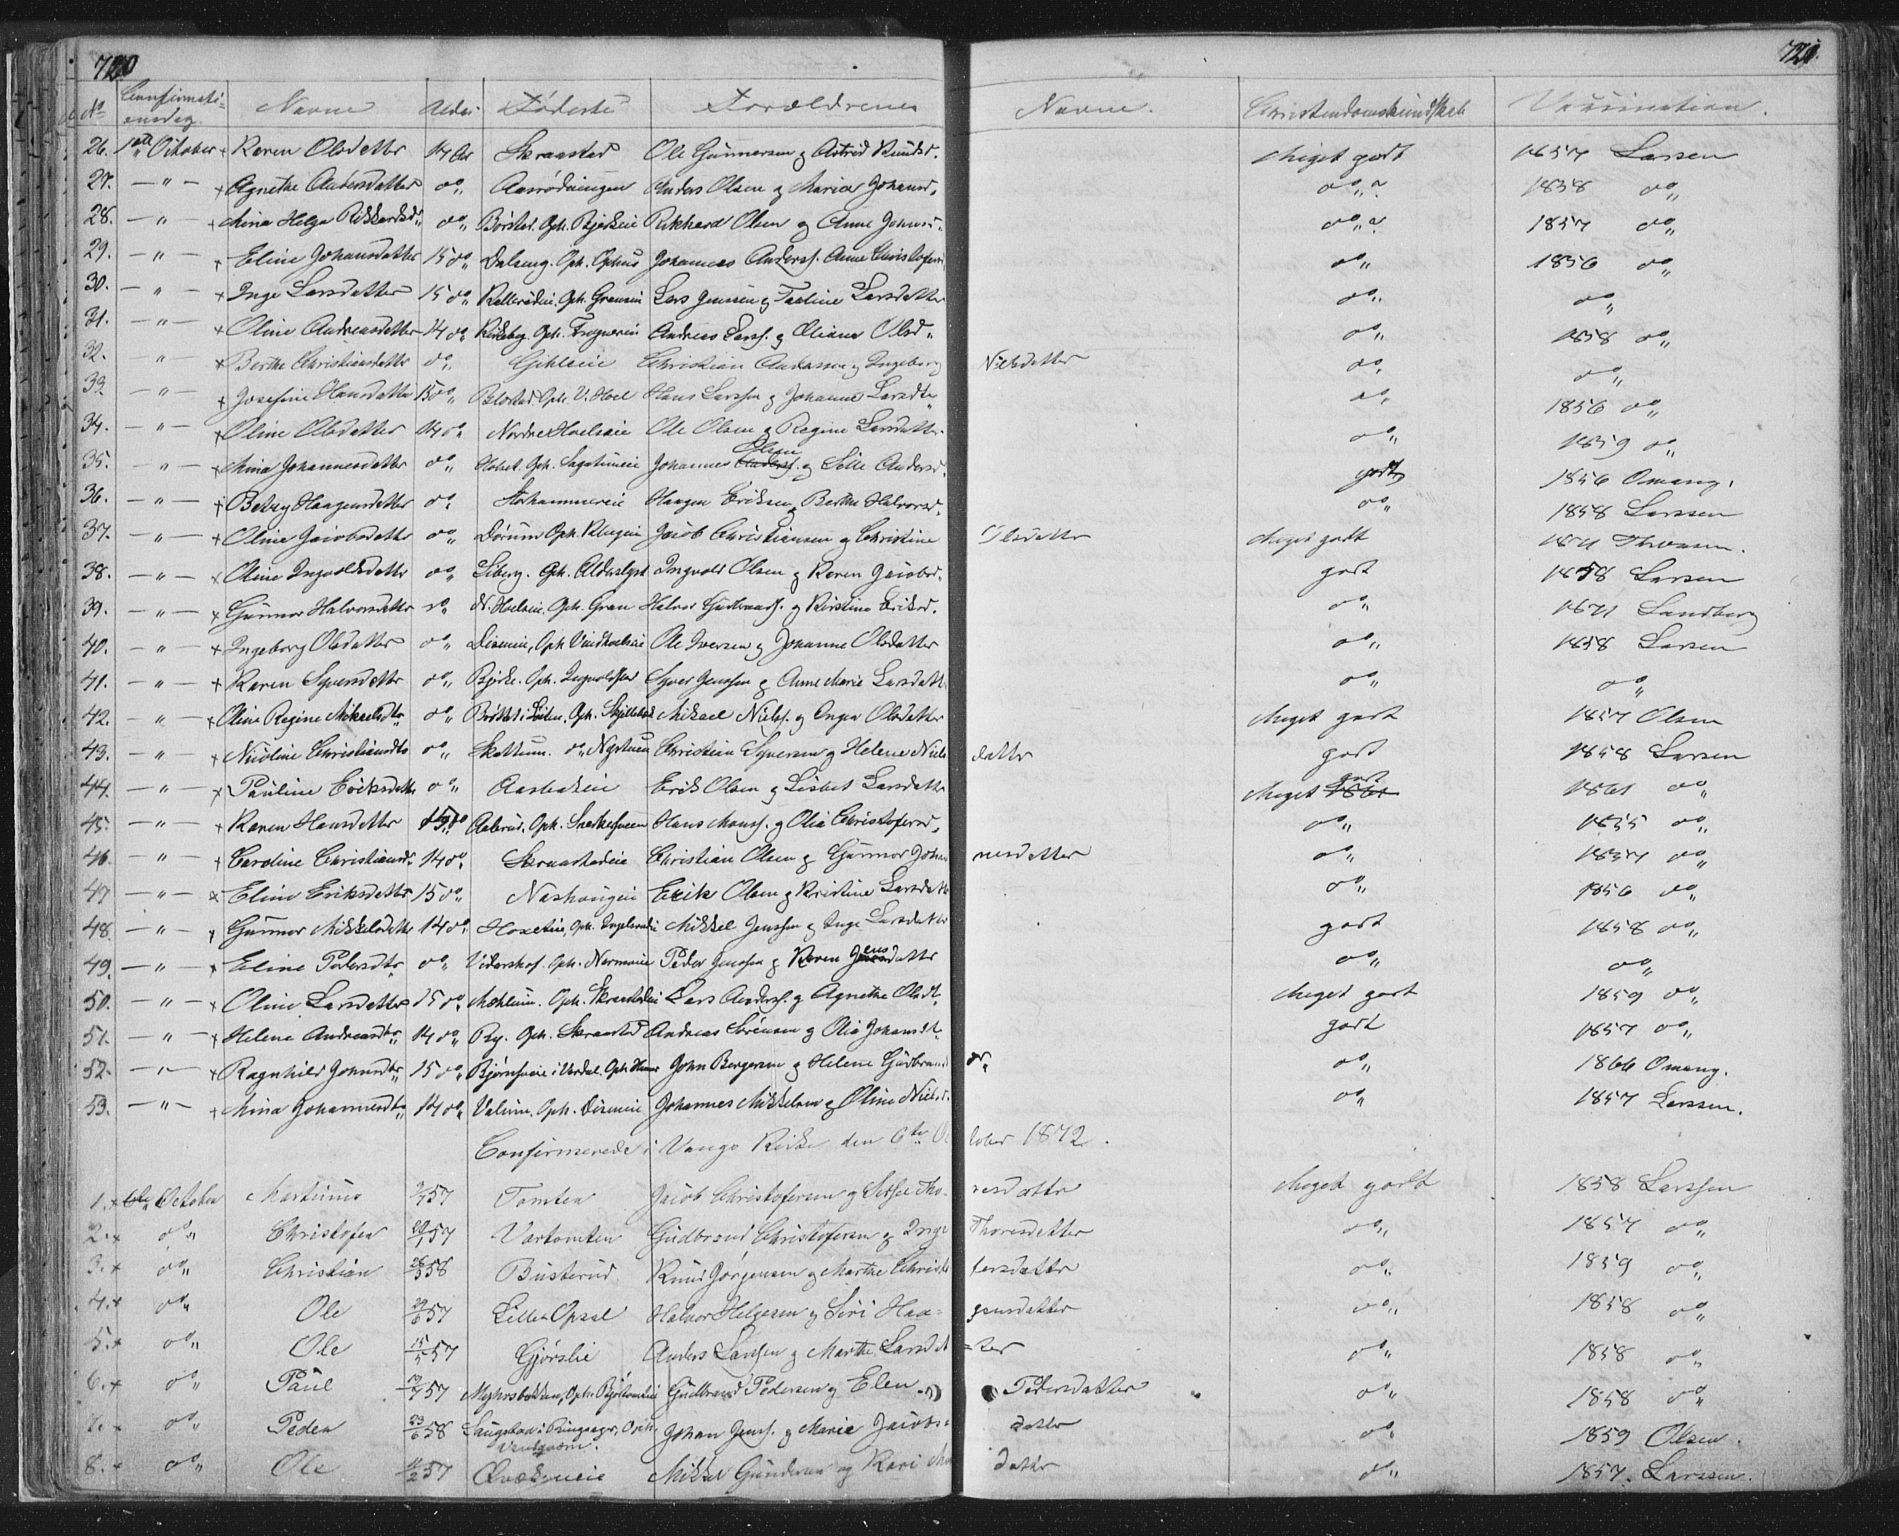 720 721.
No Confirmationsdag Navne Alder Fødested Forældrenes Navne. Christendomskundskab Vaccination.
26. 1ste October + Karen Olsdatter 14 Aar Skraastad Ole Gunnersen og Astrid Knudsd. Meget godt 1857 Larsen
27. — " — + Agnethe Andersdatter do „ Aasrødningen Anders Olsen og Maria Johansd. do „ 1858 do „
28. — " — + Mina Helga Rikkardsd. do „ Børstad. Oph. Bjerkeie Rikhard Olsen og Anne Johnsd. do „ 1857 do „
29. — " — + Eline Johansdatter 15 do „ Dalseng. Oph. Ophus Johannes Anderss. Anne Christofersd. do „ 1856 do „
30. — " — + Inge Larsdatter 15 do „ Oph. Graneie Lars Jenssen og Larsdatter do „ do „
31. — " — + Oline Andreasdatter 14 do „ Oph. Frognereie Andreas Larss. og Oliane Olsd „ do „ 1858 do „
32. — " — + Berthe Christiansdatter do „ Christian Andersen og Ingeborg Nielsdatter do „ do „
33. — " — + Josefine Hansdatter 15 do „ Oph. V. Hoel Hans Larssen og Johanne Larsdtr do „ 1856 do „
34. — " — + Oline Olsdatter 14 do „ Nordre Hoelseie Ole Olsen og Regine Larsdatter. do „ 1859 do „
35. — " — + Mina Johannesdatter do „ Oph. Sagatuneie Johannes Olsen og Sille Andersd. godt 1856 Omang.
36. — " — + Betzy Haagensdatter do „ Storhammereie Haagen Eriksen og Berthe Halvorsd. do „ 1858 Larssen
37. — " — + Oline Jacobsdatter do „ Dørum Oph. Jacob Christiansen og Christine Olsdatter Meget godt 1871 Thoresen.
38. — " — + Oline Ingvoldsdatter do „ Oph. Alderslyst Ingvold Olsen og Karen Jacobsd. godt 1858 Larsen
39. — " — + Gunnor Halvorsdatter do „ N. Hoelseie. Oph. Gran Halvor Gudbrands. og Kirstine Eriksd. do „ 1871 Sandberg
40. — " — + Ingeborg Olsdatter do „ Oph. Vindhoelseie Ole Iversen og Johanne Olsdatter do „ 1858 Larsen
41. — " — + Karen Syversdatter do „ Bjerke. Oph. Syver Jenssen og Anne Marie Larsdatter do „ do „
42. — " — + Oline Regine Mikaelsdtr do „ i Løiten. Oph. Mikael Nielss. og Inger Olsdatter Meget godt 1857 Olsen
43. — " — + Nicoline Christiansdtr do „ Skattum. do „ Nystuen Christian Syversen og Helene Nielsdatter godt 1858 Larsen
44. — " — + Pauline Eriksdatter do „ Aasbakeie Erik Olsen og Lisbet Larsdatter Meget godt 1861 do „
45. — " — + Karen Hansdatter 15 do „ Oph. Snekkersveen Hans Monss. og Olia Christofersd. do „ 1855 do „
46. — " — + Caroline Christiansd. 14 do „ Skraastadeie Christian Olsen og Gunnor Johannesdatter do „ 1857 do „
47 — " — + Eline Eriksdatter 15 do „ Nashougeie Erik Olsen og Kristine Larsdatter do „ 1856 do „
48. — " — + Gunnor Mikkelsdatter 14 do „ Oph. Mikkel Jenssen og Inge Larsdatter godt 1858 do „
49. — " — + Eline Pedersdtr do „ Vidershof. Oph. Normaneie Peder Jenssen og Karen Jensdatter do „ do „
50. — " — + Oline Larsdatter 15 do „ Mæhlum. Oph. Skraastadeie Lars Anderss. og Agnethe Olsdt. Meget godt 1859 do „
51. — " — + Helene Andreasdtr 14 do „ Ry. Oph. Skraastad Andreas Sørensen og Olia Johansdt. godt 1857 do „
52. — " — + Ragnhild Johnsdtr 15 do „ i Vardal. Oph. John Borgersen og Helene Gudbrandsdr. do „ 1866 Omang.
53. — " — + Mina Johannesdtr 14 do „ Valum, Oph. Diseneie Johannes Mikkelsen og Oline Nielsd. do „ 1857 Larssen.
Confirmerede i Vangs Kirke den 6te October 1872.
1. + 6te October Martinus 57 Tomten Jacob Christofersen og Thoresdatter Meget godt 1858 Larssen
2. + do „ Christofer 29/1 57 Vartomten Gudbrand Christofersen og Inge Thoresdatter do „ 1857 do „
3. + do „ Christian 26/3 58 Busterud Knud Jørgensen og Marthe Christofersdatter do „ 1859 do „
4. + do „ Ole 29/6 57 Lille Opsal Halvor Helgesen og Siri Haagensdatter do „ 1858 do „
5. + do „ Ole 15/5 57 Gjørslie Anders Larssen og Marthe Larsdatter do „ 1858 do „
6. + do „ Paul 57 Myhrsbakken, Oph. Gudbrand Pedersen og Elen Pedersdatter do „ 1858 do „
7. + do „ Peder 23/6 58 Saugstad i Ringsager, Oph. Johan Jenss. og Marie Jacobsdatter do „ 1859 Olsen.
8. + do „ Ole 57 Mikkel Gundersen og Kari datter do „ 1857. Larssen.